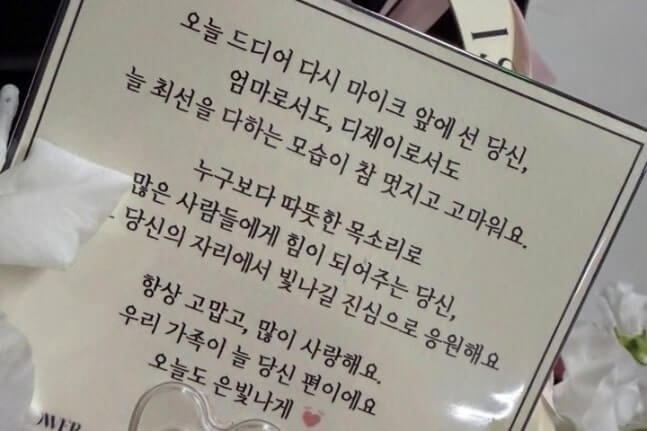 오늘 드디어 다시 마이크 앞에 선 당신,
엄마로서도, 디제이로서도
늘 최선을 다하는 모습이 참 멋지고 고마워요.
누구보다 따뜻한 목소리로
많은 사람들에게 힘이 되어주는 당신,
당신의 자리에서 빛나길 진심으로 응원해요
항상 고맙고, 많이 사랑해요.
우리 가족이 늘 당신 편이에요
오늘도 은빛나게